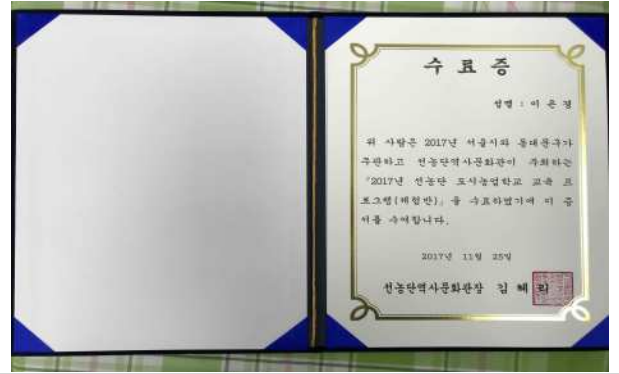 수 료 증
성명 : 이 은 정
위 사람은 2017년 서울시와 동대문구가
주관하고 선농단역사문화관이 주최하는
「2017년 선농단 도시농업학교 교육 프
로그램(체험반)」을 수료하였기에 이 증
서를 수여합니다.
2017년 11월 25일
선농단역사문화관장 김 혜 리